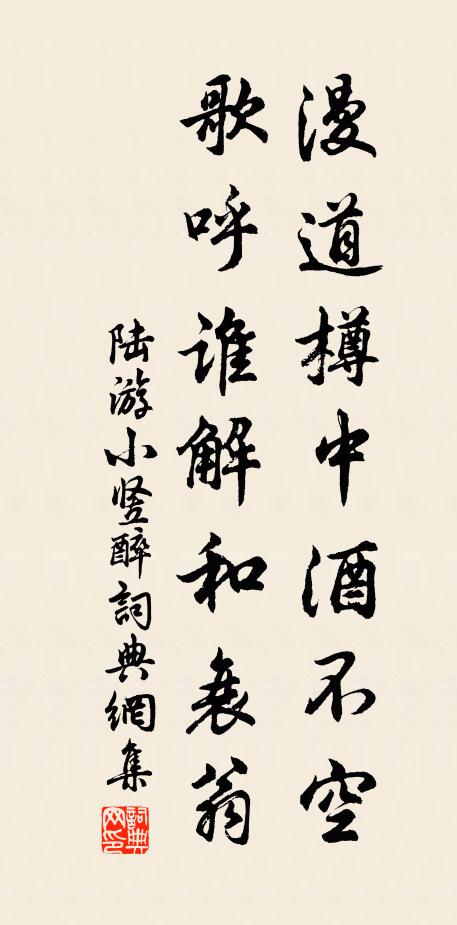 漫道樽中酒不空
歌呼谁解和衰翁
陆游小竖醉詞典網集
詞典网印